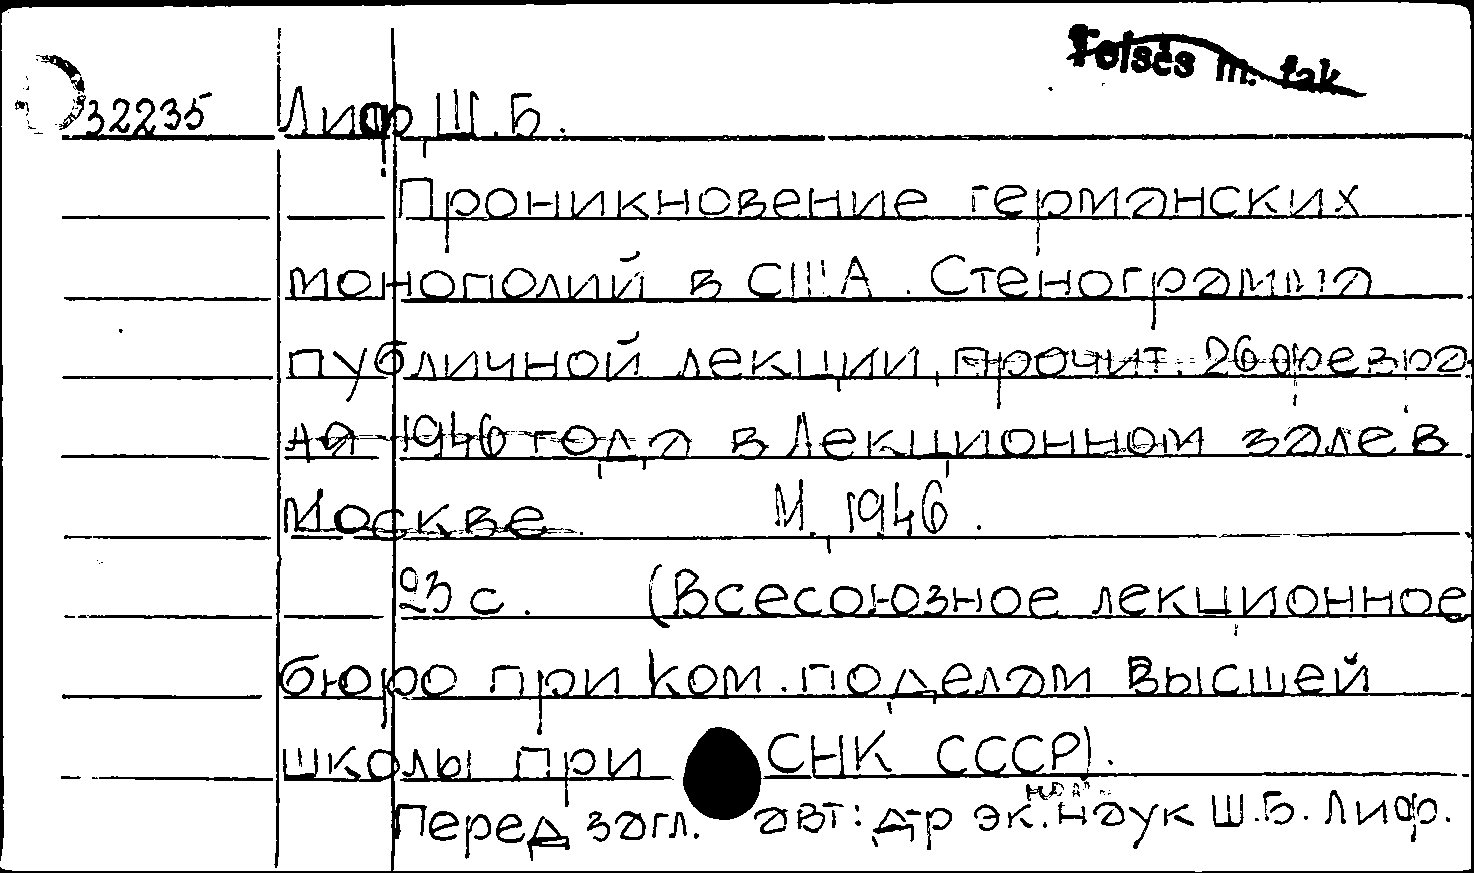 Teisės m. fak.
D32235 Лиф, Ш.Б.
Проникновение германских
монополий в США. Стенограмма
публичной лекции, прочит. 26 февра
ля 1946 года в Лекционном зале в
Москве М., 1946.
23 с. (Всесоюзное лекционное
бюро при Ком. по делам высшей
школы при СНК СССР).
Перед загл. авт: д-р эк. наук Ш.Б. Лиф.